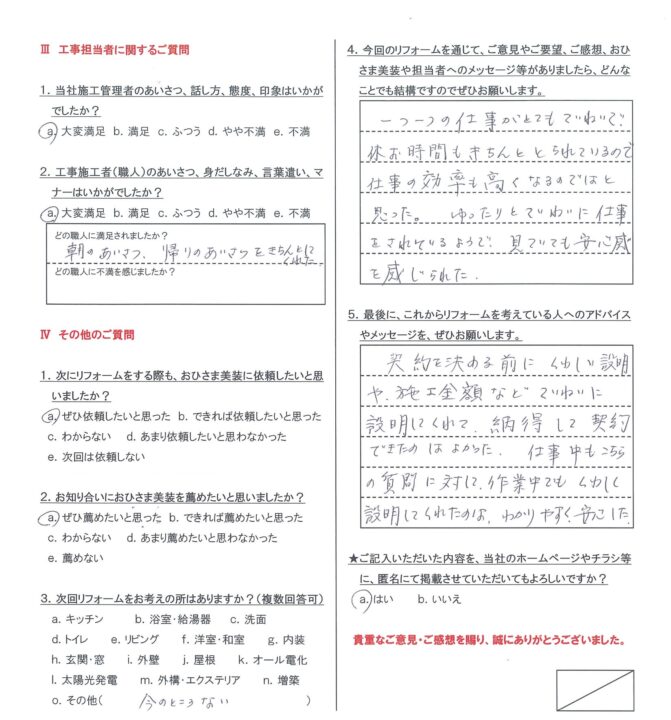 Ⅲ 工事担当者に関するご質問
1. 当社施工管理者のあいさつ、話し方、態度、印象はいかが
でしたか?
a. 大変満足 b. 満足 c. ふつう d. やや不満 e. 不満
2. 工事施工者(職人)のあいさつ、身だしなみ、言葉遣い、マ
ナーはいかがでしたか?
a. 大変満足 b. 満足 c. ふつう d. やや不満 e. 不満
どの職人に満足されましたか?
朝のあいさつ、帰りのあいさつをきちんとして
くれた
どの職人に不満を感じましたか?
Ⅳ その他のご質問
1. 次にリフォームをする際も、おひさま美装に依頼したいと思
いましたか?
a. ぜひ依頼したいと思った b. できれば依頼したいと思った
c. わからない d. あまり依頼したいと思わなかった
e. 次回は依頼しない
2. お知り合いにおひさま美装を薦めたいと思いましたか?
a. ぜひ薦めたいと思った b. できれば薦めたいと思った
c. わからない d. あまり薦めたいと思わなかった
e. 薦めない
3. 次回リフォームをお考えの所はありますか?(複数回答可)
a. キッチン b. 浴室・給湯器 c. 洗面
d. トイレ e. リビング f. 洋室・和室 g. 内装
h. 玄関・窓 i. 外壁 j. 屋根 k. オール電化
l. 太陽光発電 m. 外構・エクステリア n. 増築
o. その他( 今のところない )
4. 今回のリフォームを通じて、ご意見やご要望、ご感想、おひ
さま美装や担当者へのメッセージ等がありましたら、どんな
ことでも結構ですのでぜひお願いします。
一つ一つの仕事がとてもていねいで、
休む時間もきちんととられているので
仕事の効率も高くなるのではと
思った。 ゆったりとていねいに仕事
をされているようで、見ていても安心感
を感じられた.
5. 最後に、これからリフォームを考えている人へのアドバイス
やメッセージを、ぜひお願いします。
契約を決める前に くわしい説明
や、施工金額など ていねいに
説明してくれて、納得して契約
できたのはよかった. 仕事中もこちら
の質問に対して、作業中でもくわしく
説明してくれたのは、わかりやすく、安心した.
★ご記入いただいた内容を、当社のホームページやチラシ等
に、匿名にて掲載させていただいてもよろしいですか?
a. はい b. いいえ
貴重なご意見・ご感想を賜り、誠にありがとうございました。